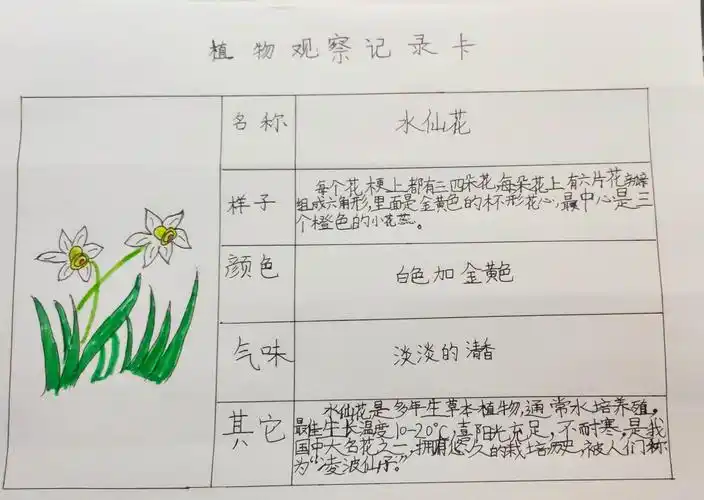 植物观察记录卡
名称
水仙花
样子
每个花梗上都有三四朵花,每朵花上有六片花瓣
组成六角形,里面是金黄色的杯形花心,最中心是三
个橙色的小花蕊。
颜色
白色加金黄色
气味
淡淡的清香
其它
水仙花是多年生草本植物,通常水培养殖。
最佳生长温度10-20℃,喜阳光充足,不耐寒。是我
国中大名花之一,拥有悠久的栽培历史,被人们称
为“凌波仙子”。